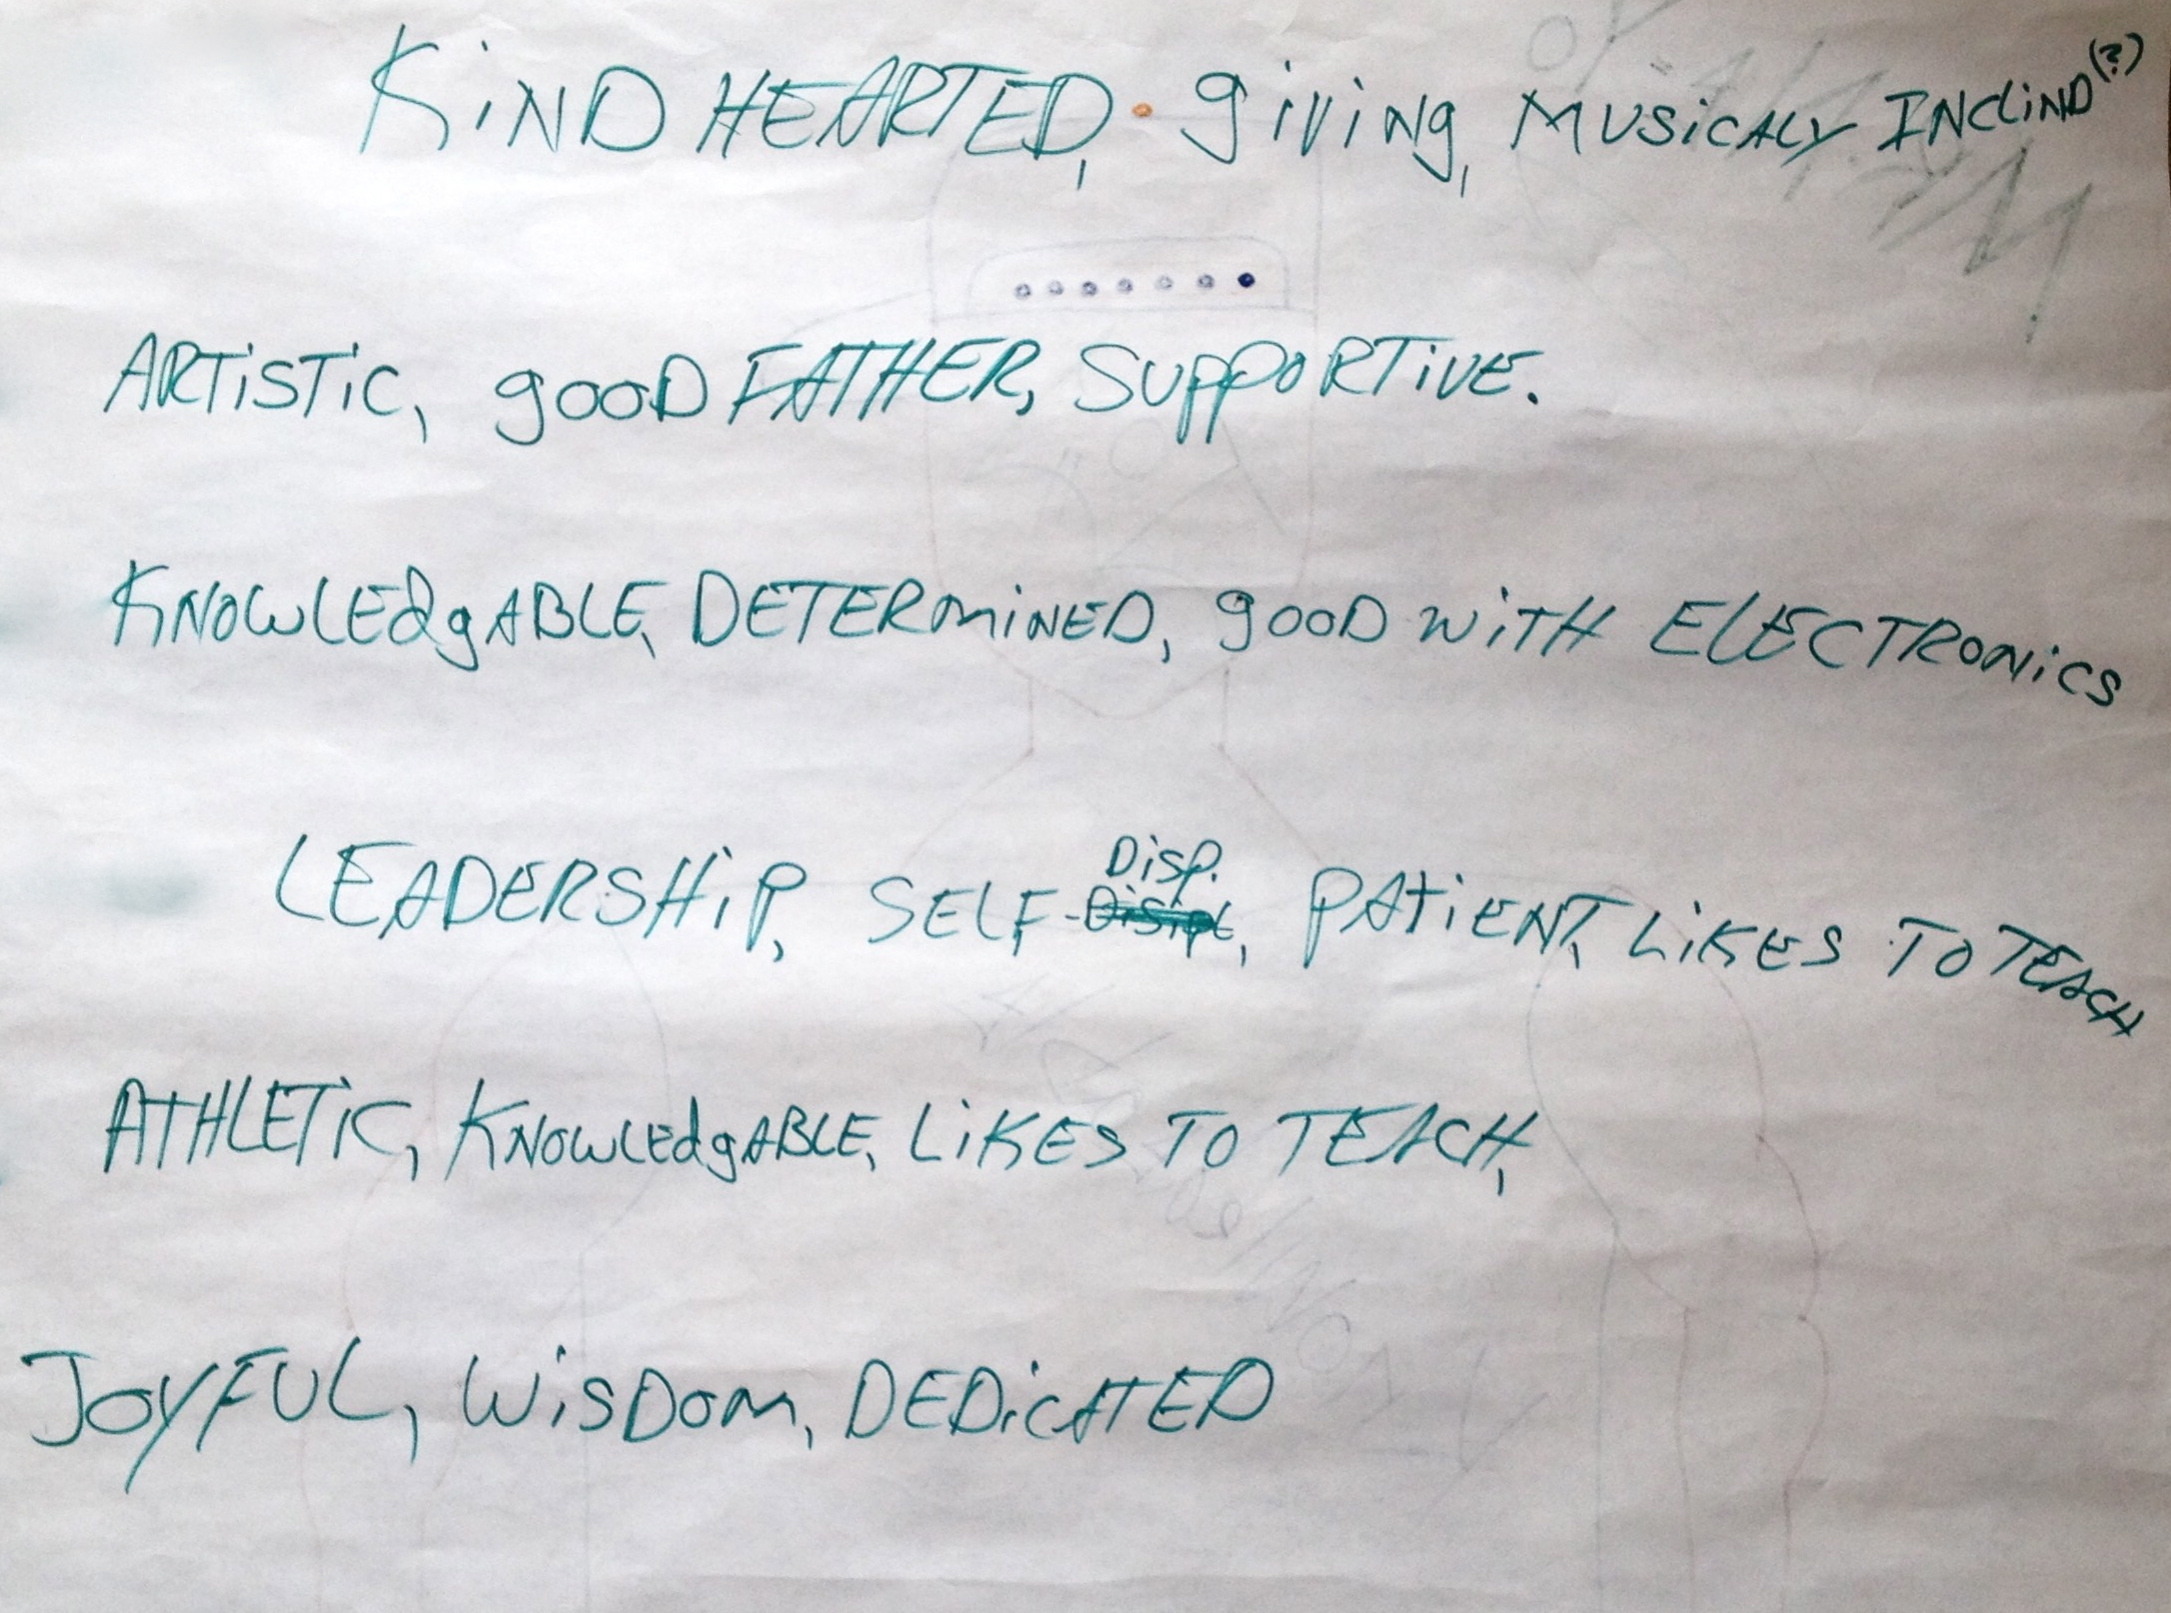 KiND HEARTED, giving, MUSiCALY INCliND (?)
ARTiSTiC, gooD FATHER, SUppORTiVE.
KNOWLEdgABLE, DETERmiNED, gooD WiTH ElECTRONiCS
LEADERSHiP, SELF-Disp., PATiENT, LiKES TO TEACH
ATHLETiC, KNOWLEdgABLE, LiKES TO TEACH,
JOYFUL, WiSDOm, DEDiCATED